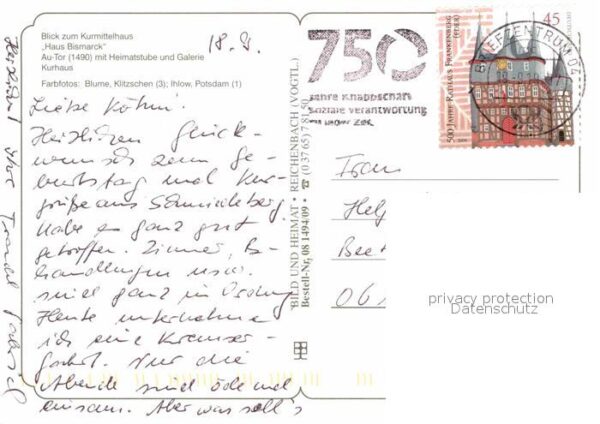 Blick zum Kurmittelhaus
„Haus Bismarck“
Au-Tor (1490) mit Heimatstube und Galerie
Kurhaus
Farbfotos: Blume, Klitzschen (3); Ihlow, Potsdam (1)
18.9.
Liebe
Herzlichen Glück-
wunsch zum Ge-
burtstag und Kur-
grüße aus Schmiedeberg.
Habe es ganz gut
getroffen. Zimmer, Be-
handlungen usw.
sind ganz in Ordnung
Heute unternehme
ich eine Kremser-
fahrt. Nur die
Abende sind öde und
einsam. Aber was soll's
Herzlichst
BILD UND HEIMAT • REICHENBACH (VOGTL.)
Bestell-Nr. 08 1494/09 • ☎ (0 37 65) 7 81 50
750
Jahre Knappschaft
Soziale Verantwortung
BRIEFZENTRUM 04
45
500 JAHRE RATHAUS FRANKENBERG
(EDER)
Frau
Hel
Bee
06
privacy protection
Datenschutz